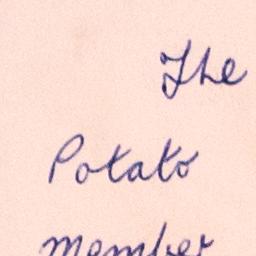 The
Potato
member